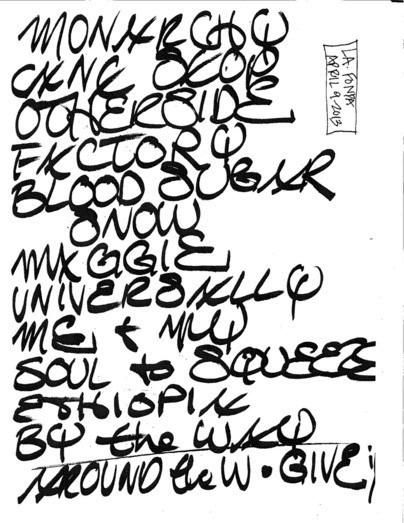 MONARCHY
CAN'T STOP
OTHERSIDE
FACTORY
BLOOD SUGAR
SNOW
MAGGIE
UNIVERSALLY
ME + MY
SOUL to SQUEEZE
ETHIOPIA
BY the WAY
AROUND the W • GIVE
LA. FONDA
APRIL 9-2013